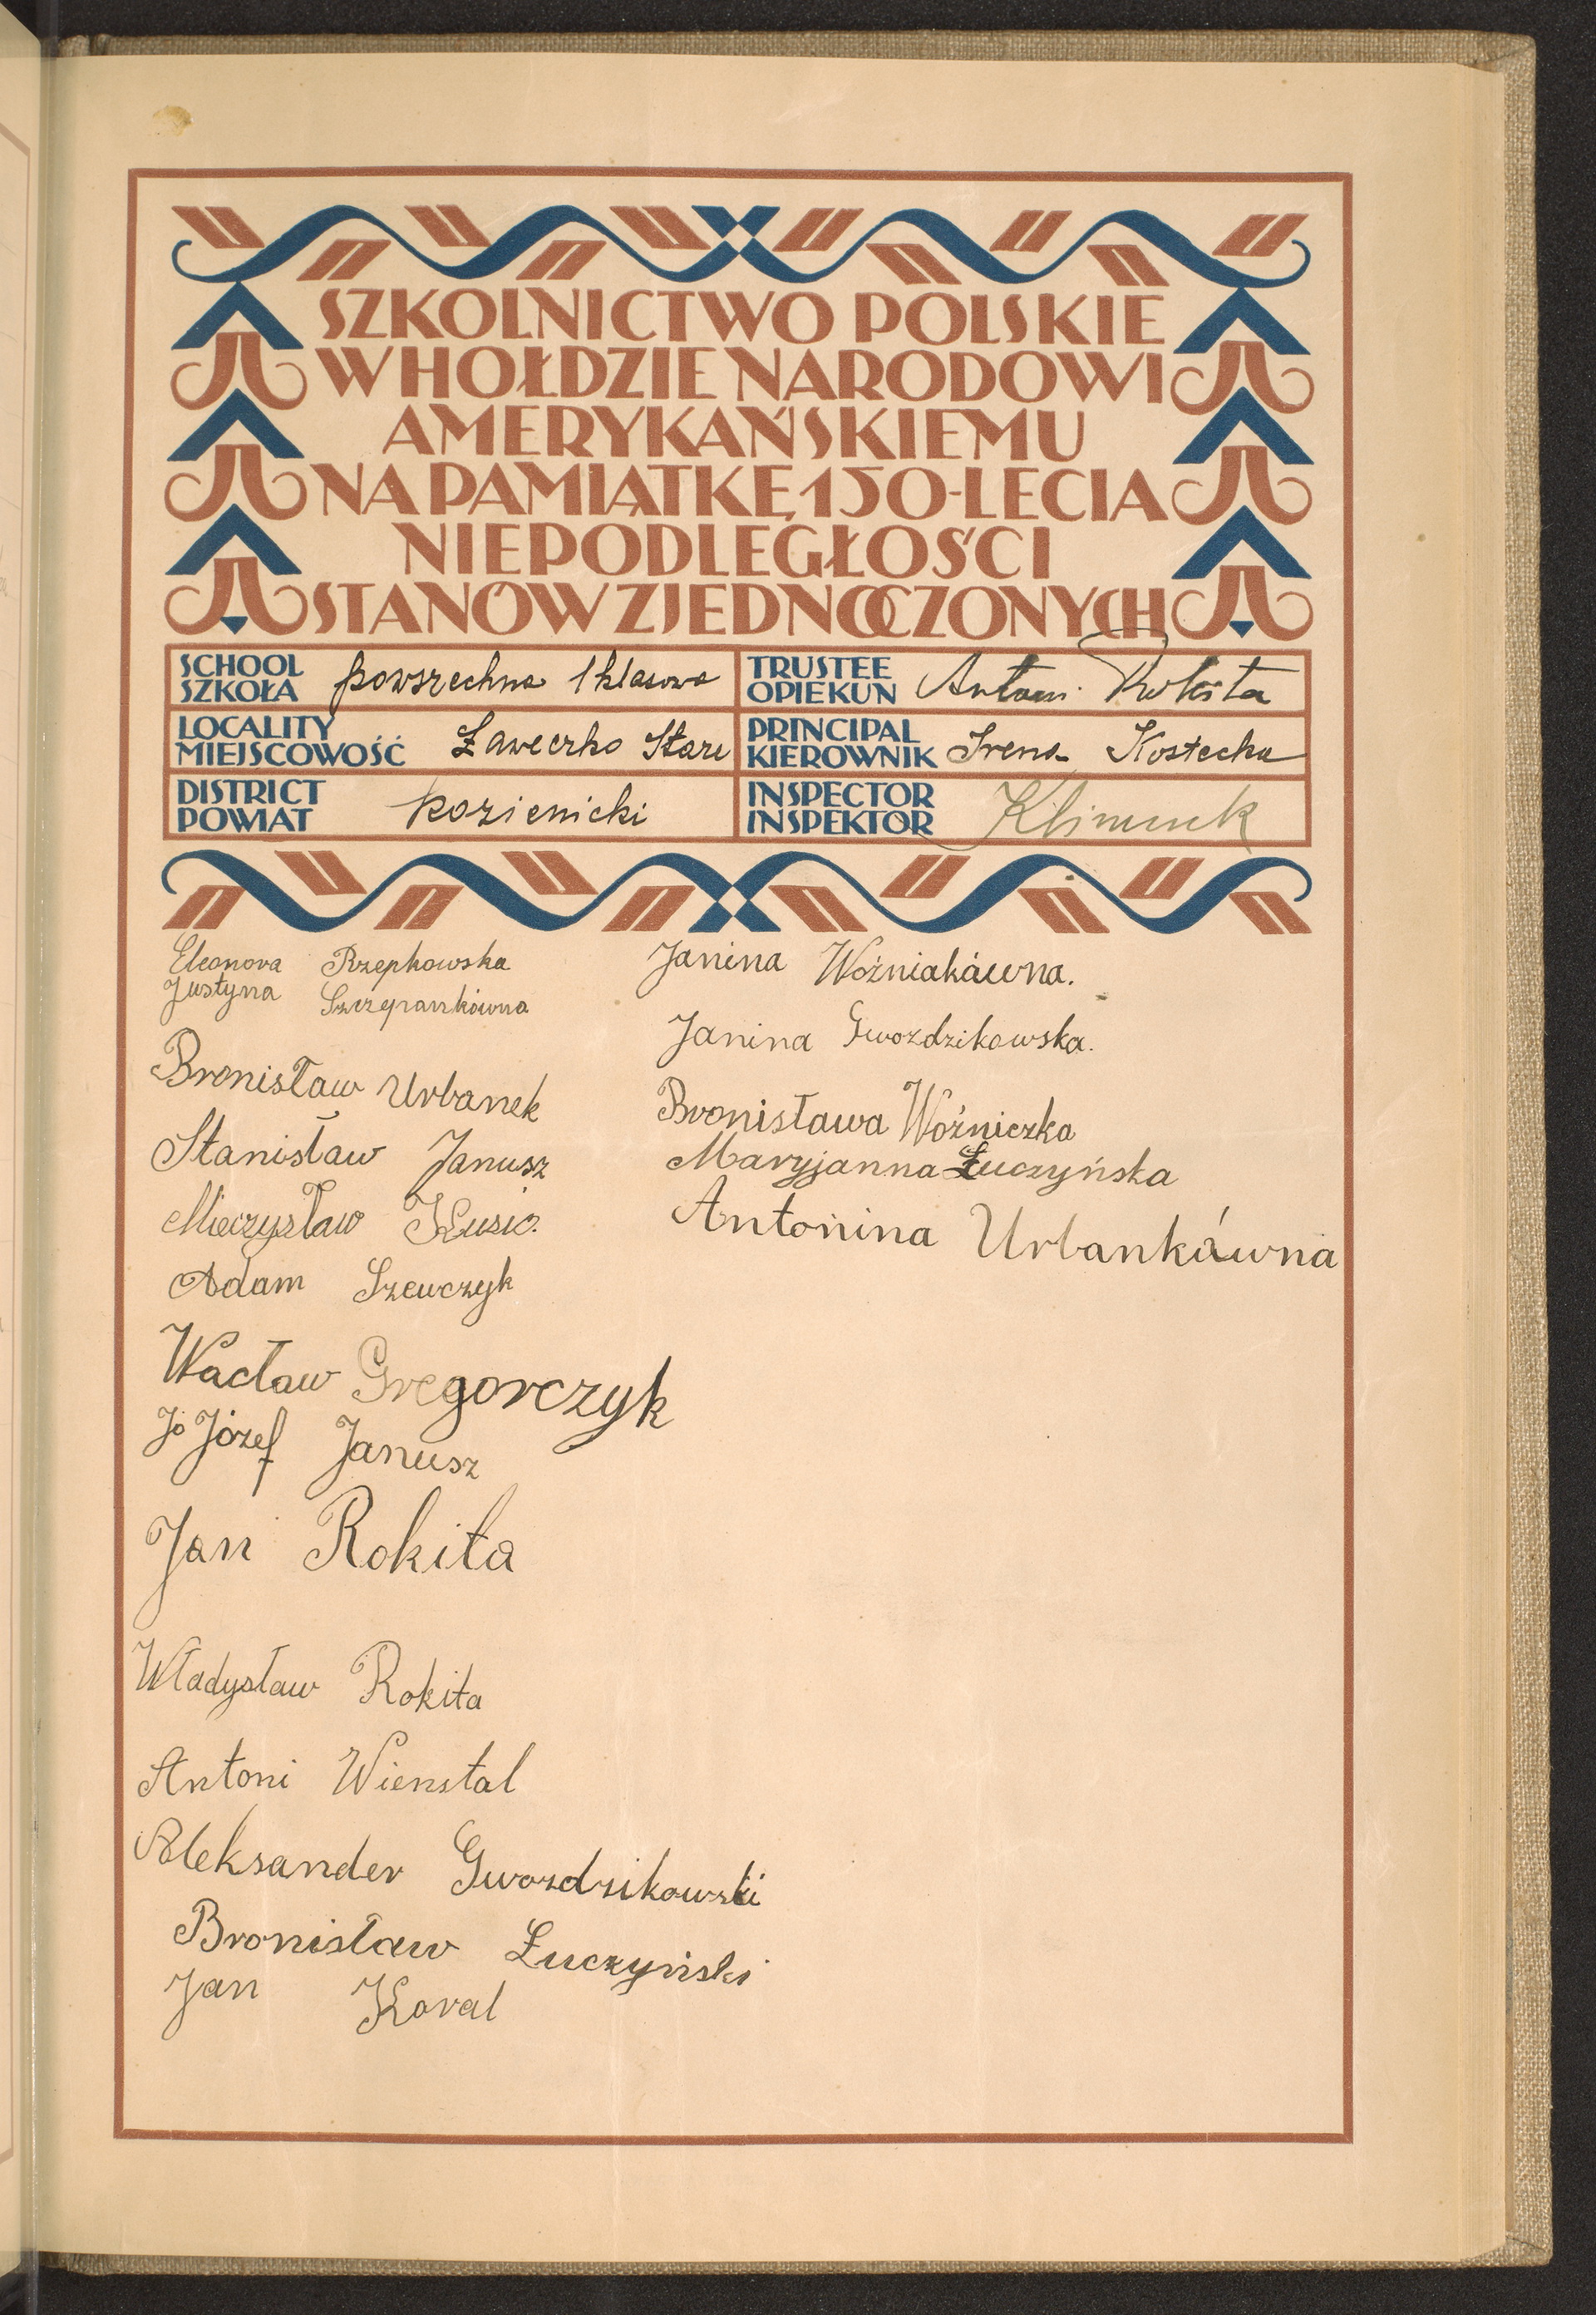 SZKOLNICTWO POLSKIE
W HOŁDZIE NARODOWI
AMERYKAŃSKIEMU
NA PAMIĄTKĘ 150-LECIA
NIEPODLEGŁOŚCI
STANÓW ZJEDNOCZONYCH
SCHOOL
SZKOŁA powszechna 1 klasowa
TRUSTEE
OPIEKUN Antoni Rokita
LOCALITY
MIEJSCOWOŚĆ Ławeczko Stare
PRINCIPAL
KIEROWNIK Irena Kostecka
DISTRICT
POWIAT Kozienicki
INSPECTOR
INSPEKTOR
Eleonora Rzepkowska
Justyna Szczepankówna
Bronisław Urbanek
Stanisław Janusz
Mieczysław Kusio.
Adam Szewczyk
Wacław Gregorczyk
Jó Józef Janusz
Jan Rokita
Władysław Rokita
Antoni Wienstal
Aleksander Gwozdzikowski
Bronisław Łuczyński
Jan Koral
Janina Woźniakówna.
Janina Gwozdzikowska.
Bronisława Woźniczka
Maryjanna Łuczyńska
Antonina Urbankówna